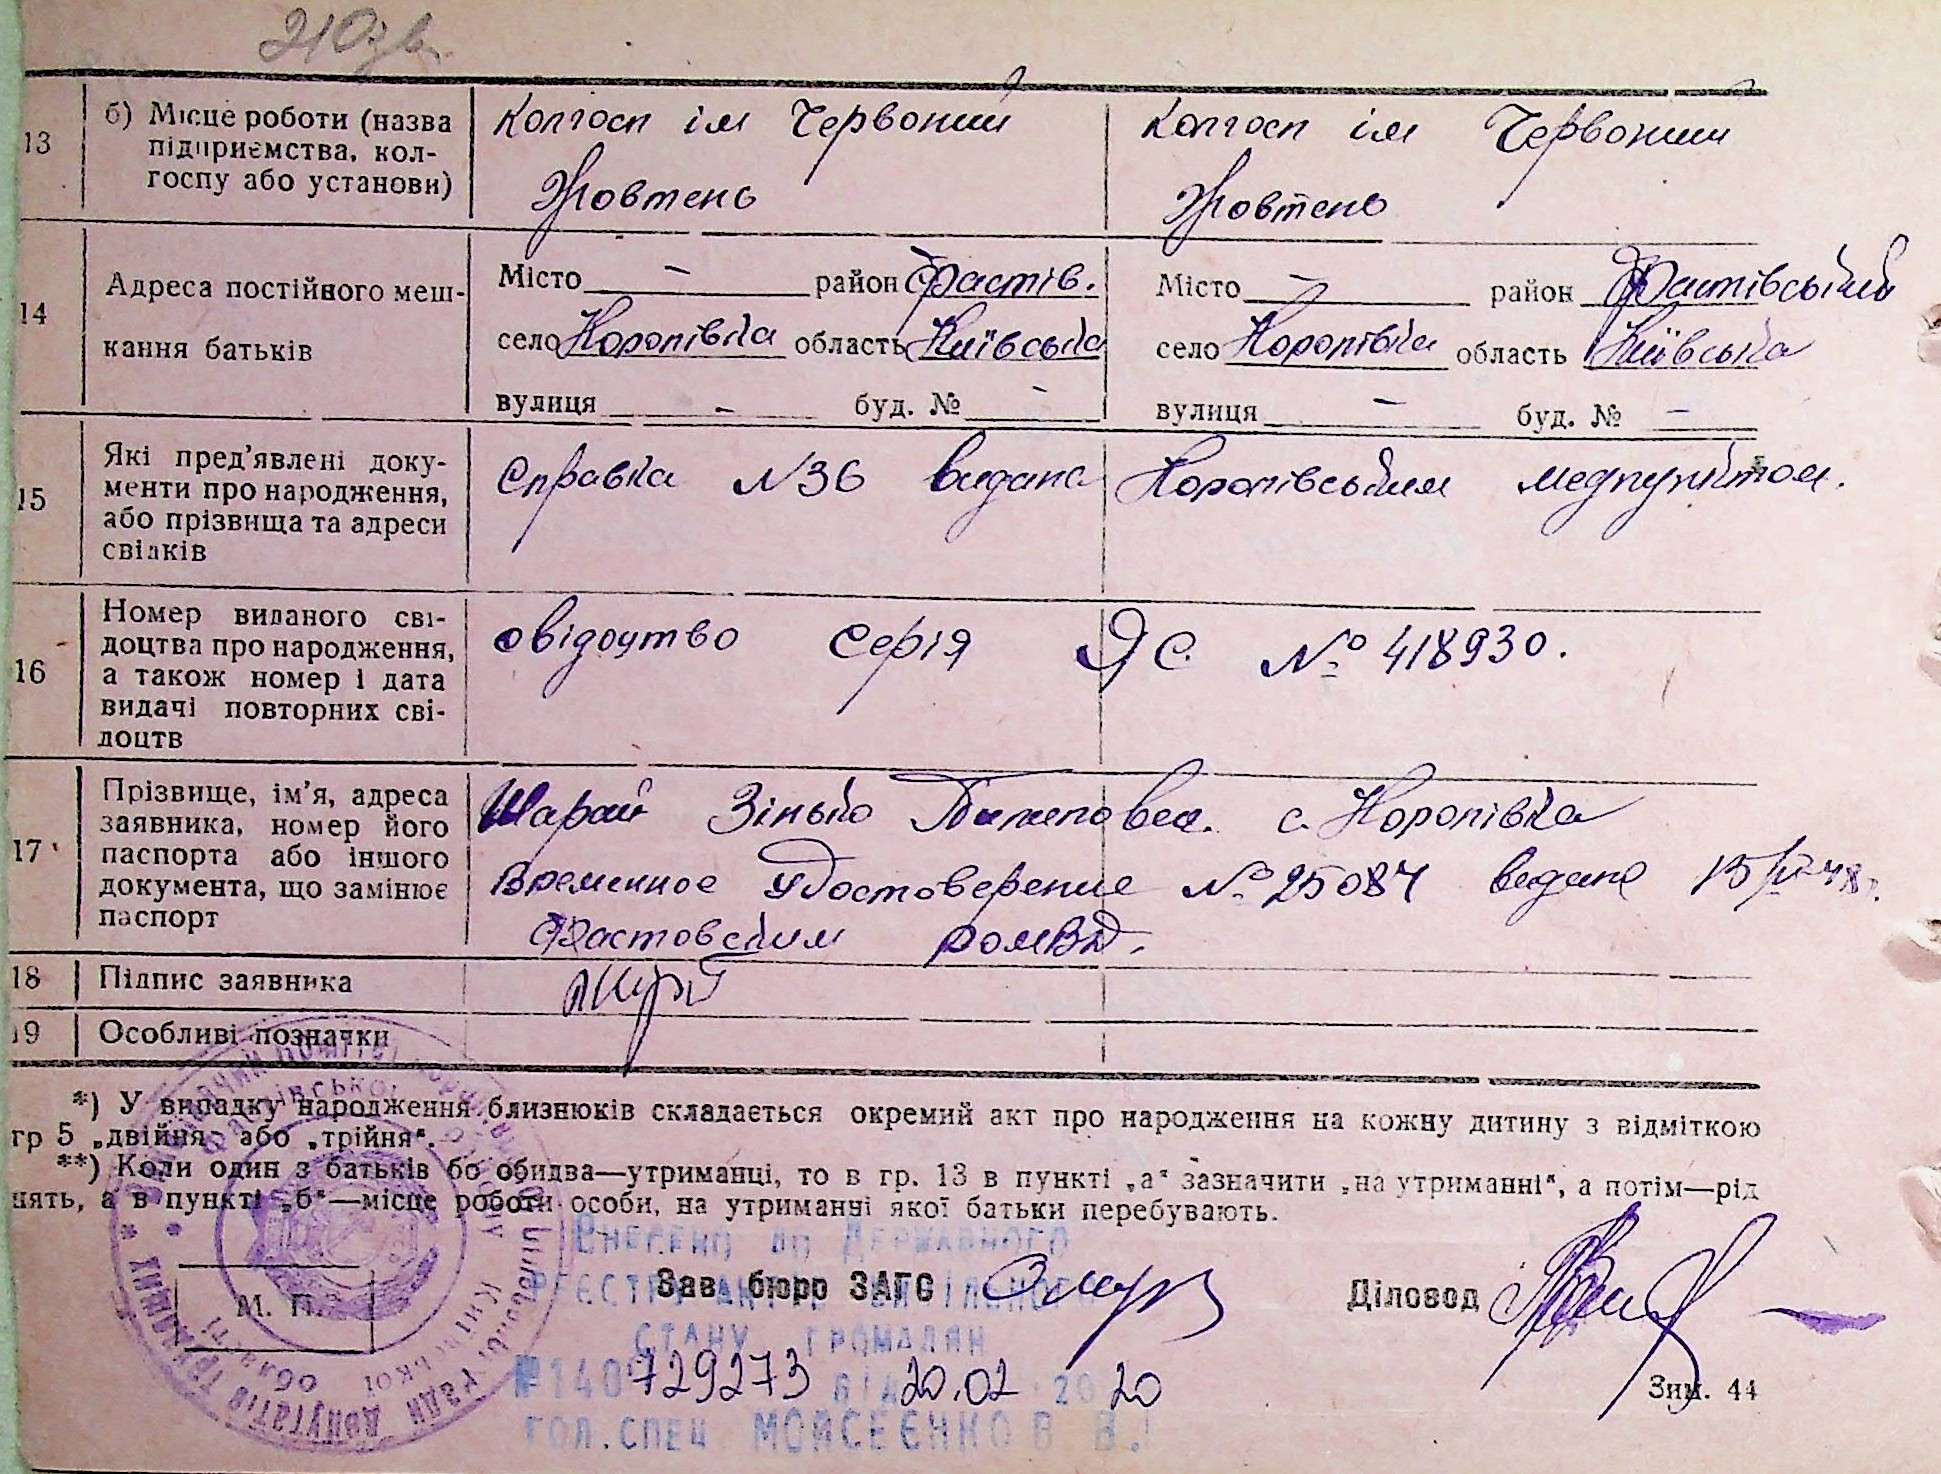 210
13 б) Місце роботи (назва підприємства, колгоспу або установи)
Колгосп ім Червоний Жовтень
Колгосп ім Червоний Жовтень
14 Адреса постійного мешкання батьків
Місто – район Фастів.
село Коропівка область Київська
вулиця – буд. № –
Місто – район Фастівський
село Коропівка область Київська
вулиця – буд. № –
15 Які пред'явлені документи про народження, або прізвища та адреси свідків
Справка N36 видана Коропівським медпунктом.
16 Номер виданого свідоцтва про народження, а також номер і дата видачі повторних свідоцтв
свідоцтво серія ЯС. № 418930.
17 Прізвище, ім'я, адреса заявника, номер його паспорта або іншого документа, що замінює паспорт
Шарай Зінько с. Коропівка
Временное удостоверение № 25084 видано
Фастовским РОМВД.
18 Підпис заявника
19 Особливі позначки
*) У випадку народження близнюків складається окремий акт про народження на кожну дитину з відміткою
гр 5 „двійня" або „трійня".
**) Коли один з батьків бо обидва—утриманці, то в гр. 13 в пункті „а" зазначити „на утриманні", а потім—рід
нять, а в пункті „б"—місце роботи особи, на утриманні якої батьки перебувають.
Внесено до Державного
реєстру актів цивільного
стану громадян
№140729273 від 20.02.2020
гол.спец Мойсеєнко В В.
Зав. бюро ЗАГС
Діловод
М. П.
Зим. 44